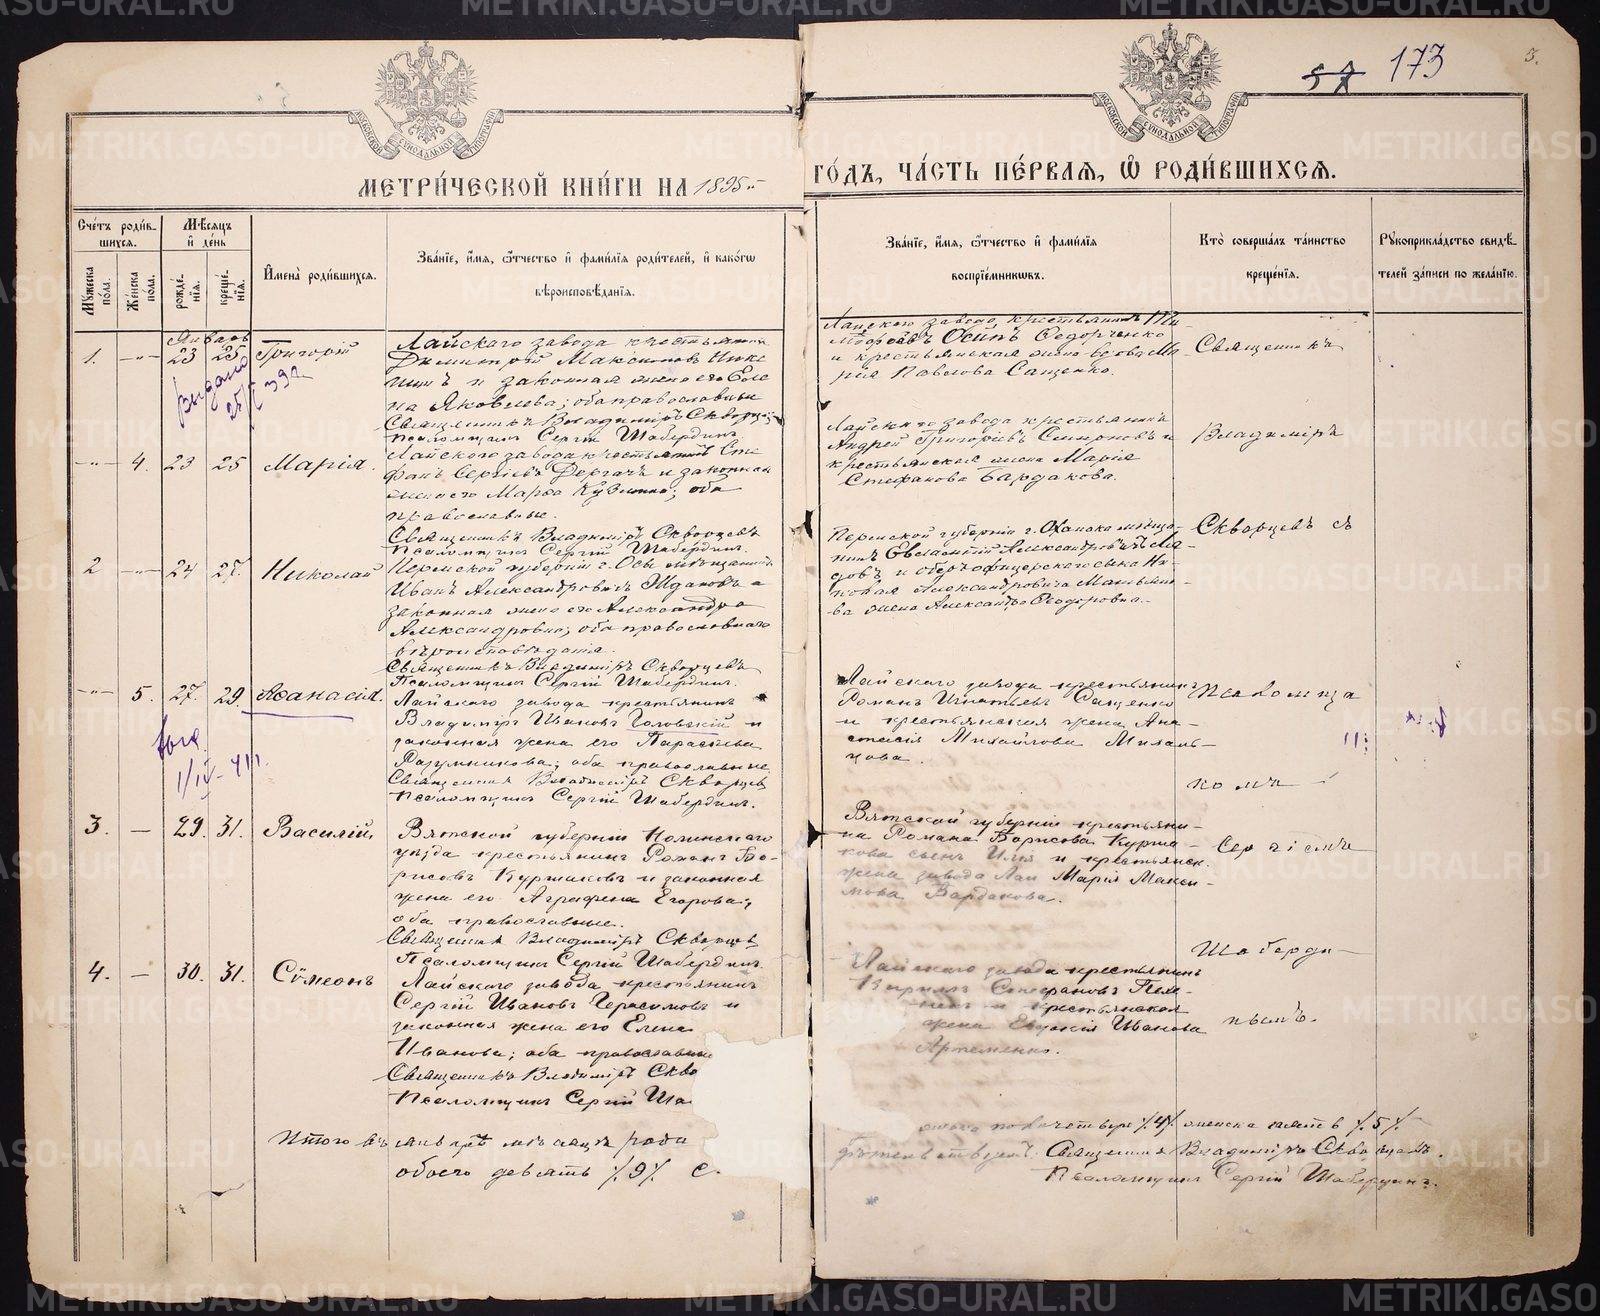 173
3.
МОСКОВСКОЙ СѴНОДАЛЬНОЙ ТИПОГРАФІИ
МОСКОВСКОЙ СѴНОДАЛЬНОЙ ТИПОГРАФІИ
МЕТРИ́ЧЕСКОЙ КНИ́ГИ НА 1895 й
ГО́ДЪ, ЧА́СТЬ ПЕ́РВАЯ, Ѽ РОДИ́ВШИХСЯ.
Сче́тъ роди́вшихся.
Му́жеска по́ла.
Же́нска по́ла.
Мѣ́сяцъ и҆ де́нь
рожде́нїѧ.
креще́нїѧ.
И҆мена̀ роди́вшихся.
Зва́нїе, и҆́мя, ѻ҆́тчество и҆ фами́лїя роди́телей, и҆ како́гѡ
вѣроисповѣ́данїя.
Зва́нїе, и҆́мя, ѻ҆́тчество и҆ фами́лїя
воспрїе́мникѡвъ.
Кто̀ соверша́лъ та́инство
креще́нїя.
Рꙋкоприкла́дство свидѣ́-
телей за́писи по жела́нїю.
Январь
1. -"- 23 25 Григорій
выдано
Лайскаго завода крестьянинъ
Димитрій Максимовъ
и законная жена его Еле-
на Яковлева; оба православные
Священникъ Владиміръ Скворцевъ
Псаломщикъ Сергій Шабердинъ.
Лайскаго завода крестьянинъ
Осипъ Федорченко
и крестьянская Ма-
рія Павлова Сащенко.
Священникъ
-"- 4. 23 25 Марія.
Лайскаго завода крестьянинъ Сте-
фанъ Сергіевъ Дергачъ и законная
жена его Марѳа Кузмина; оба
православные.
Священникъ Владиміръ Скворцевъ
Псаломщикъ Сергій Шабердинъ.
Лайскаго завода крестьянинъ
Андрей Григорьевъ Смирновъ и
крестьянская жена Марія
Стефанова Бардакова.
Владиміръ
2 -"- 24 27. Николай
Пермской губерніи г. Осы мѣщанинъ
Иванъ Александровичъ Ждановъ и
законная жена его Александра
Александровна; оба православнаго
вѣроисповѣданія.
Священникъ Владиміръ Скворцевъ
Псаломщикъ Сергій Шабердинъ.
Пермской губерніи г. Оханска мѣща-
нинъ Евлампій Александровичъ
и оберъ-офицерскаго сына Ни-
колая Александровича
жена Александра Ѳеодоровна.
Скворцевъ съ
-"- 5. 27. 29. Аѳанасія.
Лайскаго завода крестьянинъ
Владиміръ Ивановъ Головскій и
законная жена его Параскева
Разумникова; оба православные
Священникъ Владиміръ Скворцевъ
Псаломщикъ Сергій Шабердинъ.
Лайскаго завода крестьянинъ
Романъ Игнатьевъ Сащенко
и крестьянская жена Ана-
стасія Михайлова
Псаломщи-
комъ
3. — 29. 31. Василій.
Вятской губерніи Нолинскаго
уѣзда крестьянинъ Романъ Бо-
рисовъ Куршаковъ и законная
жена его Аграфена Егорова;
оба православные.
Священникъ Владиміръ Скворцевъ
Псаломщикъ Сергій Шабердинъ.
Вятской губерніи крестьяни-
на Романа Борисова Курша-
кова сынъ Илья и крестьянск.
жена завода Лаи Марія Макси-
мова Бардакова.
Сергіемъ
4. — 30. 31. Сѵмеонъ
Лайскаго завода крестьянинъ
Сергій Ивановъ Герасимовъ и
законная жена его Елена
Иванова; оба православные
Священникъ Владиміръ Скво
Псаломщикъ Сергій Ша
Лайскаго завода крестьянинъ
Кириллъ Стефановъ
крестьянская
жена Евдокія Иванова
Артеменко.
Шаберди-
нымъ.
Итого въ январѣ мѣсяцѣ роди
обоего девять /9/
четверо /4/ женска пять /5/
Священникъ Владиміръ Скворцевъ.
Псаломщикъ Сергій Шабердинъ.
METRIKI.GASO-URAL.RU